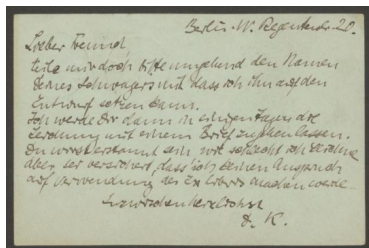 Berlin. W. Regentenstr. 20.
Lieber Freund,
teile mir doch bitte umgehend den Namen
Deines Schwagers mit dass ich ihn auf den
Entwurf setzen kann.
Ich werde Dir dann in einigen Tagen die
Zeichnung mit einem Brief zugehen lassen.
Du wirst erstaunt sein, wie schlecht ich
aber sei versichert, dass ich keinen Anspruch
auf Verwendung des Ex libris machen werde.
Inzwischen herzlichst
K.